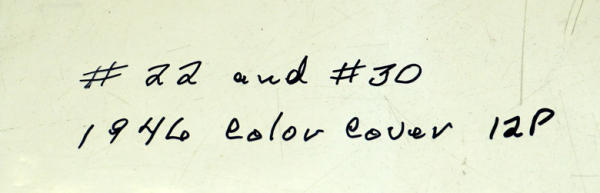 # 22 and #30
1946 Color Cover 12P